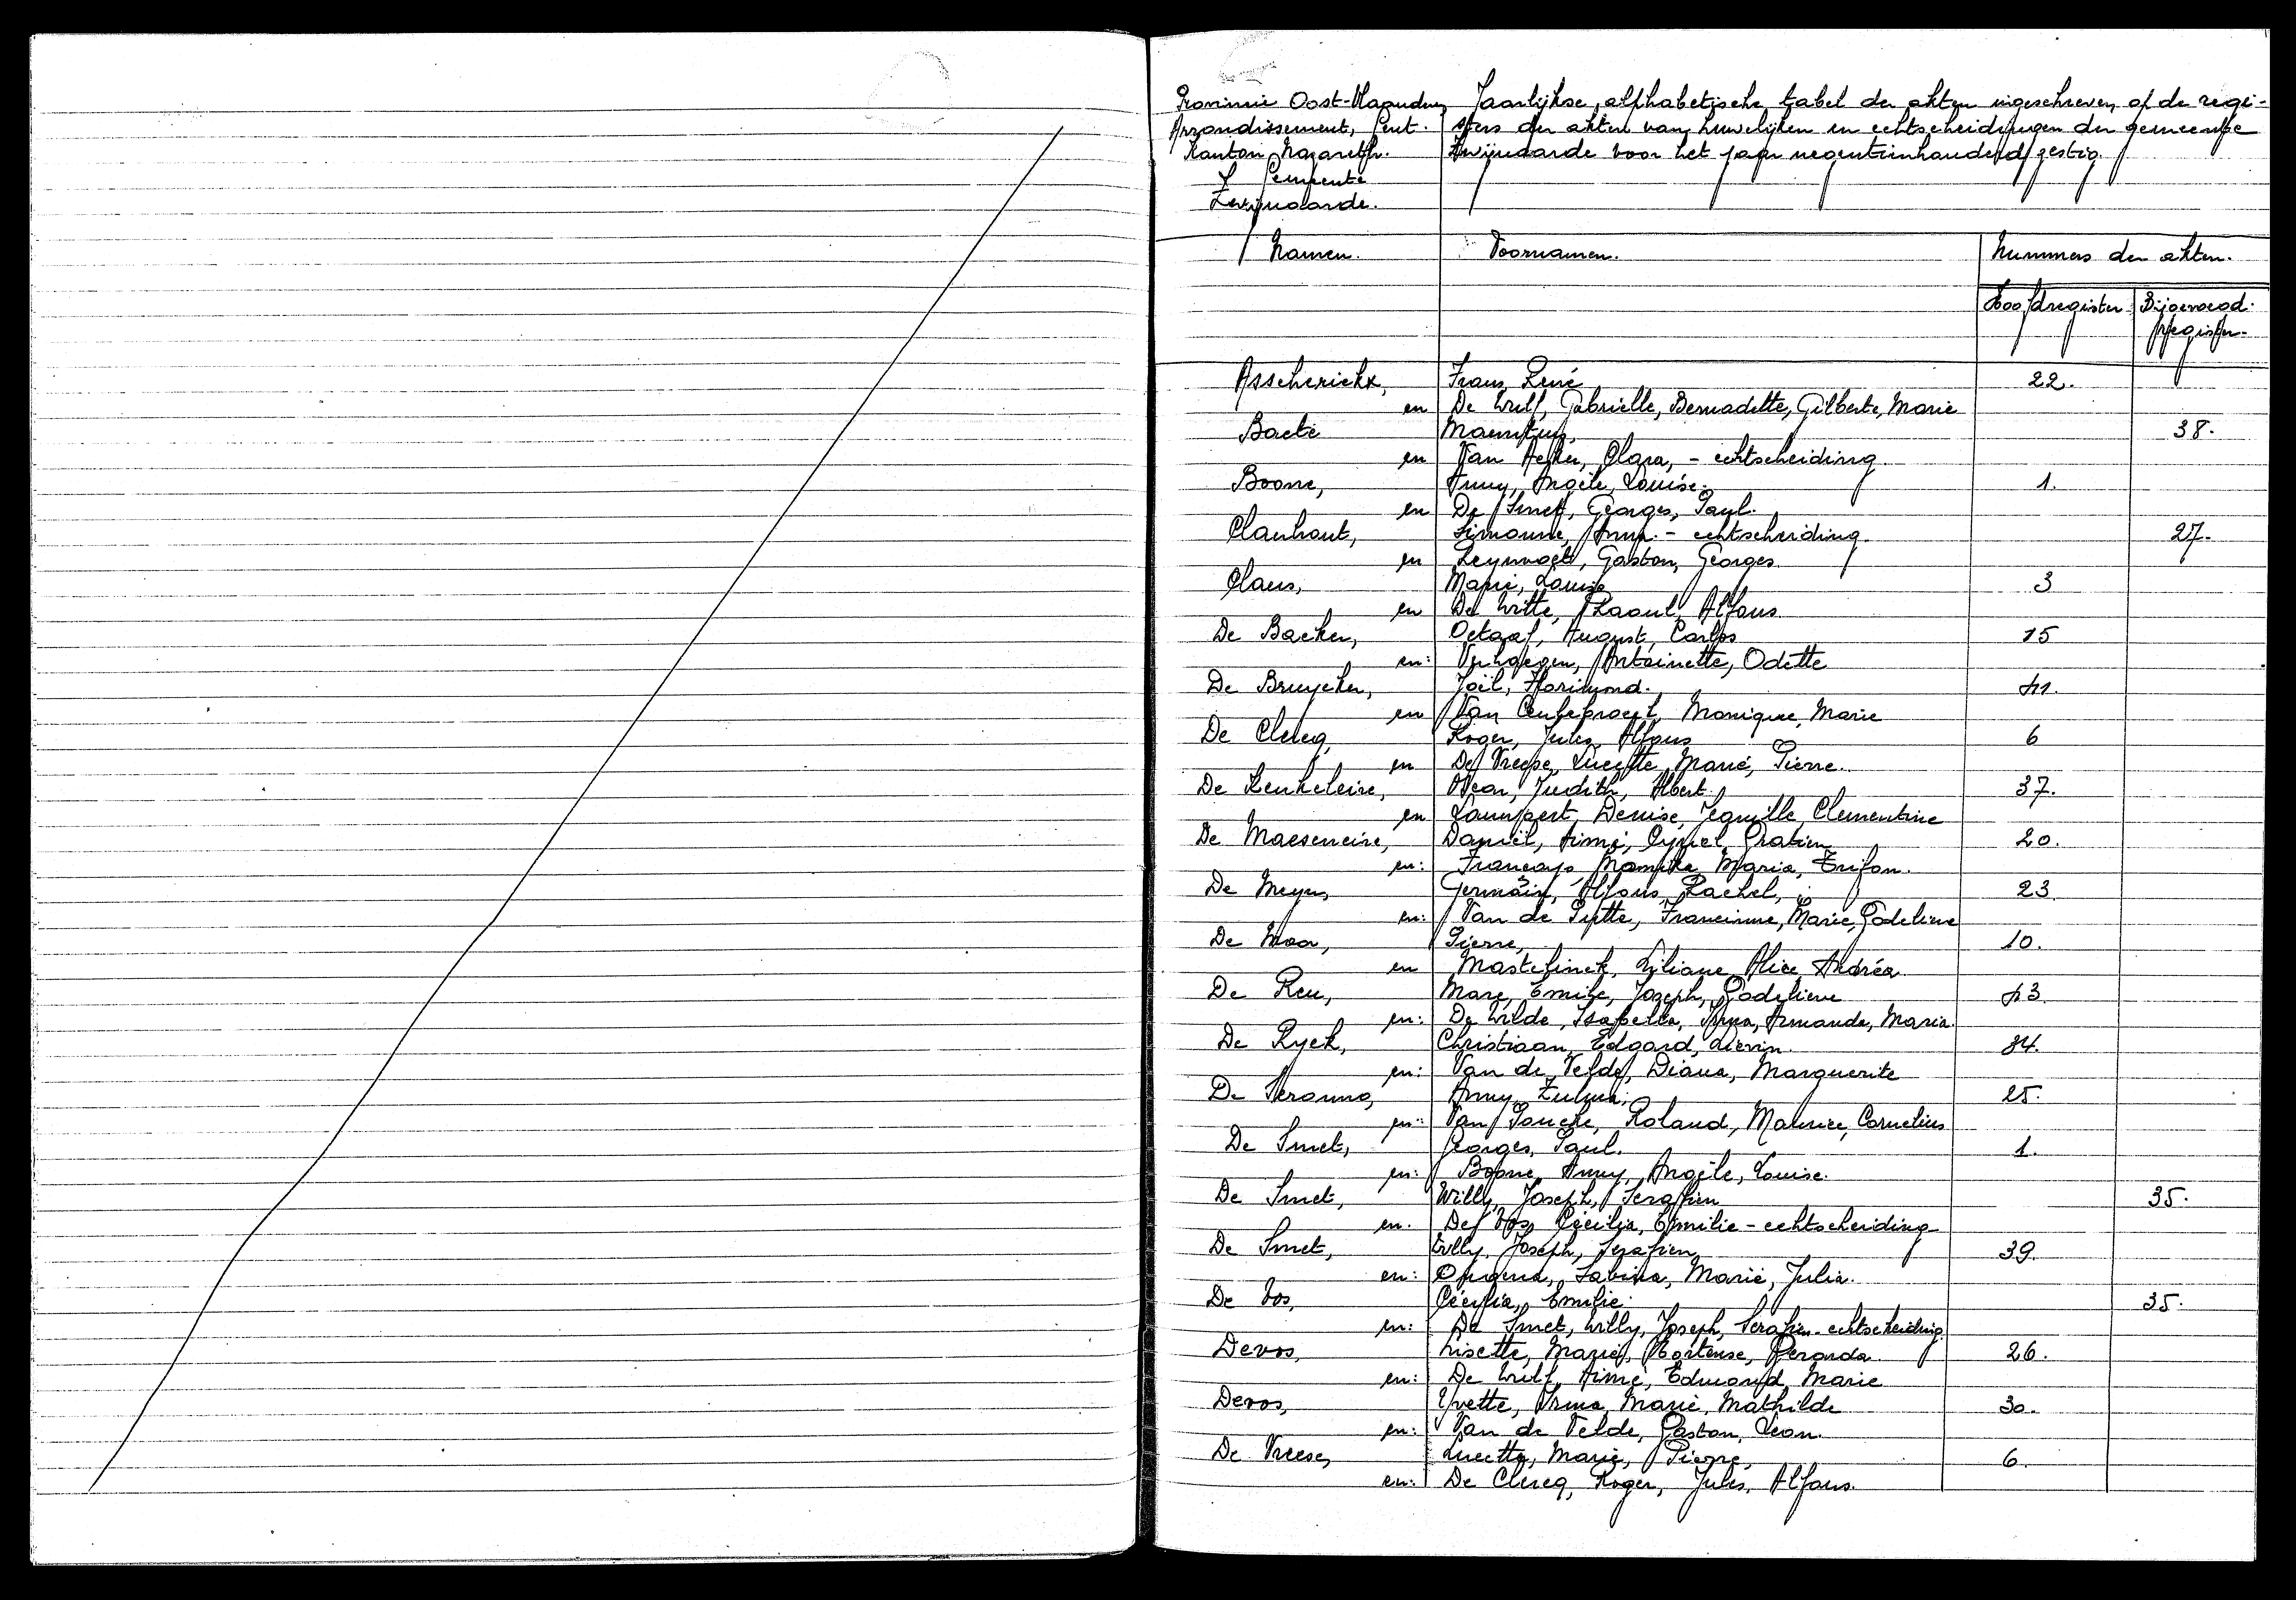 Provincie Oost-Vlaanderen
Arrondissement, Gent.
Kanton Nazareth.
Gemeente
Zwijnaarde.
Jaarlijkse, alphabetische tabel der akten ingeschreven op de regi-
sters der akten van huwelijken en echtscheidingen der gemeente
Zwijnaarde voor het jaar negentienhonderd zestig.
Namen. Voornamen. Nummers der akten.
Hoofdregister Bijgevoegd
register.
Asscherickx, Frans, René 22.
en De Wulf, Gabrielle, Bernadette, Gilberte, Marie
Baete Mauritius, 38.
en Van Clara, - echtscheiding.
Boone, Anny, Angèle, Louise. 1.
en De Smet, Georges, Paul.
Clauhout, Simonne, Anna. - echtscheiding. 27.
en Gaston, Georges.
Claus, Marie, Louise 3
en De Witte, Raoul, Alfons.
De Backer, Octaaf, August, Carlos 15
en: Verhaegen, Antoinette, Odette
De Bruycker, Joël, Florimond.
en Van Monique, Marie
De Clercq, Roger, Jules, Alfons 6
en De Vreese, Lucette, Marie, Pierre.
De Keukeleire, Judith, Albert. 37.
en Denise, Clementine
De Maeseneire, Daniël, Aimé, Cyriel, Gratien 20.
en: Maria, Trifon.
De Meyer, Germain, Alfons, Rachel, 23
en: Van de Putte, Francinne, Marie, Godelieve
De Moor, Pierre, 10.
en Mastelinck, Liliane, Alice, Andréa
De Reu, Marc, Emile, Joseph, Godelieve
en: De Wilde, Isabella, Irma, Armande, Maria.
De Ryck, Christiaan, Edgard, Lievin. 34.
en: Van de Velde, Diana, Marguerite
De Anny, Zulma, 25.
en: Van Roland, Maurice, Cornelius
De Smet, Georges, Paul. 1.
en: Boone, Anny, Angèle, Louise.
De Smet, Willy, Joseph, Serafien 35.
en. De Vos, Cécilia, Emilie - echtscheiding
De Smet, Willy, Joseph, Serafien, 39
en: Sabina, Marie, Julia.
De Vos, Cécilia, Emilie. 35.
en: De Smet, Willy, Joseph, Serafien - echtscheiding.
Devos, Lisette, Marie, Hortense, Gerarda. 26.
en: De Wulf, Aimé, Edmond, Marie
Devos, Yvette, Irma, Marie, Mathilde 30.
en: Van de Velde, Gaston, Leon.
De Vreese, Lucette, Marie, Pierre, 6.
en: De Clercq, Roger, Jules, Alfons.